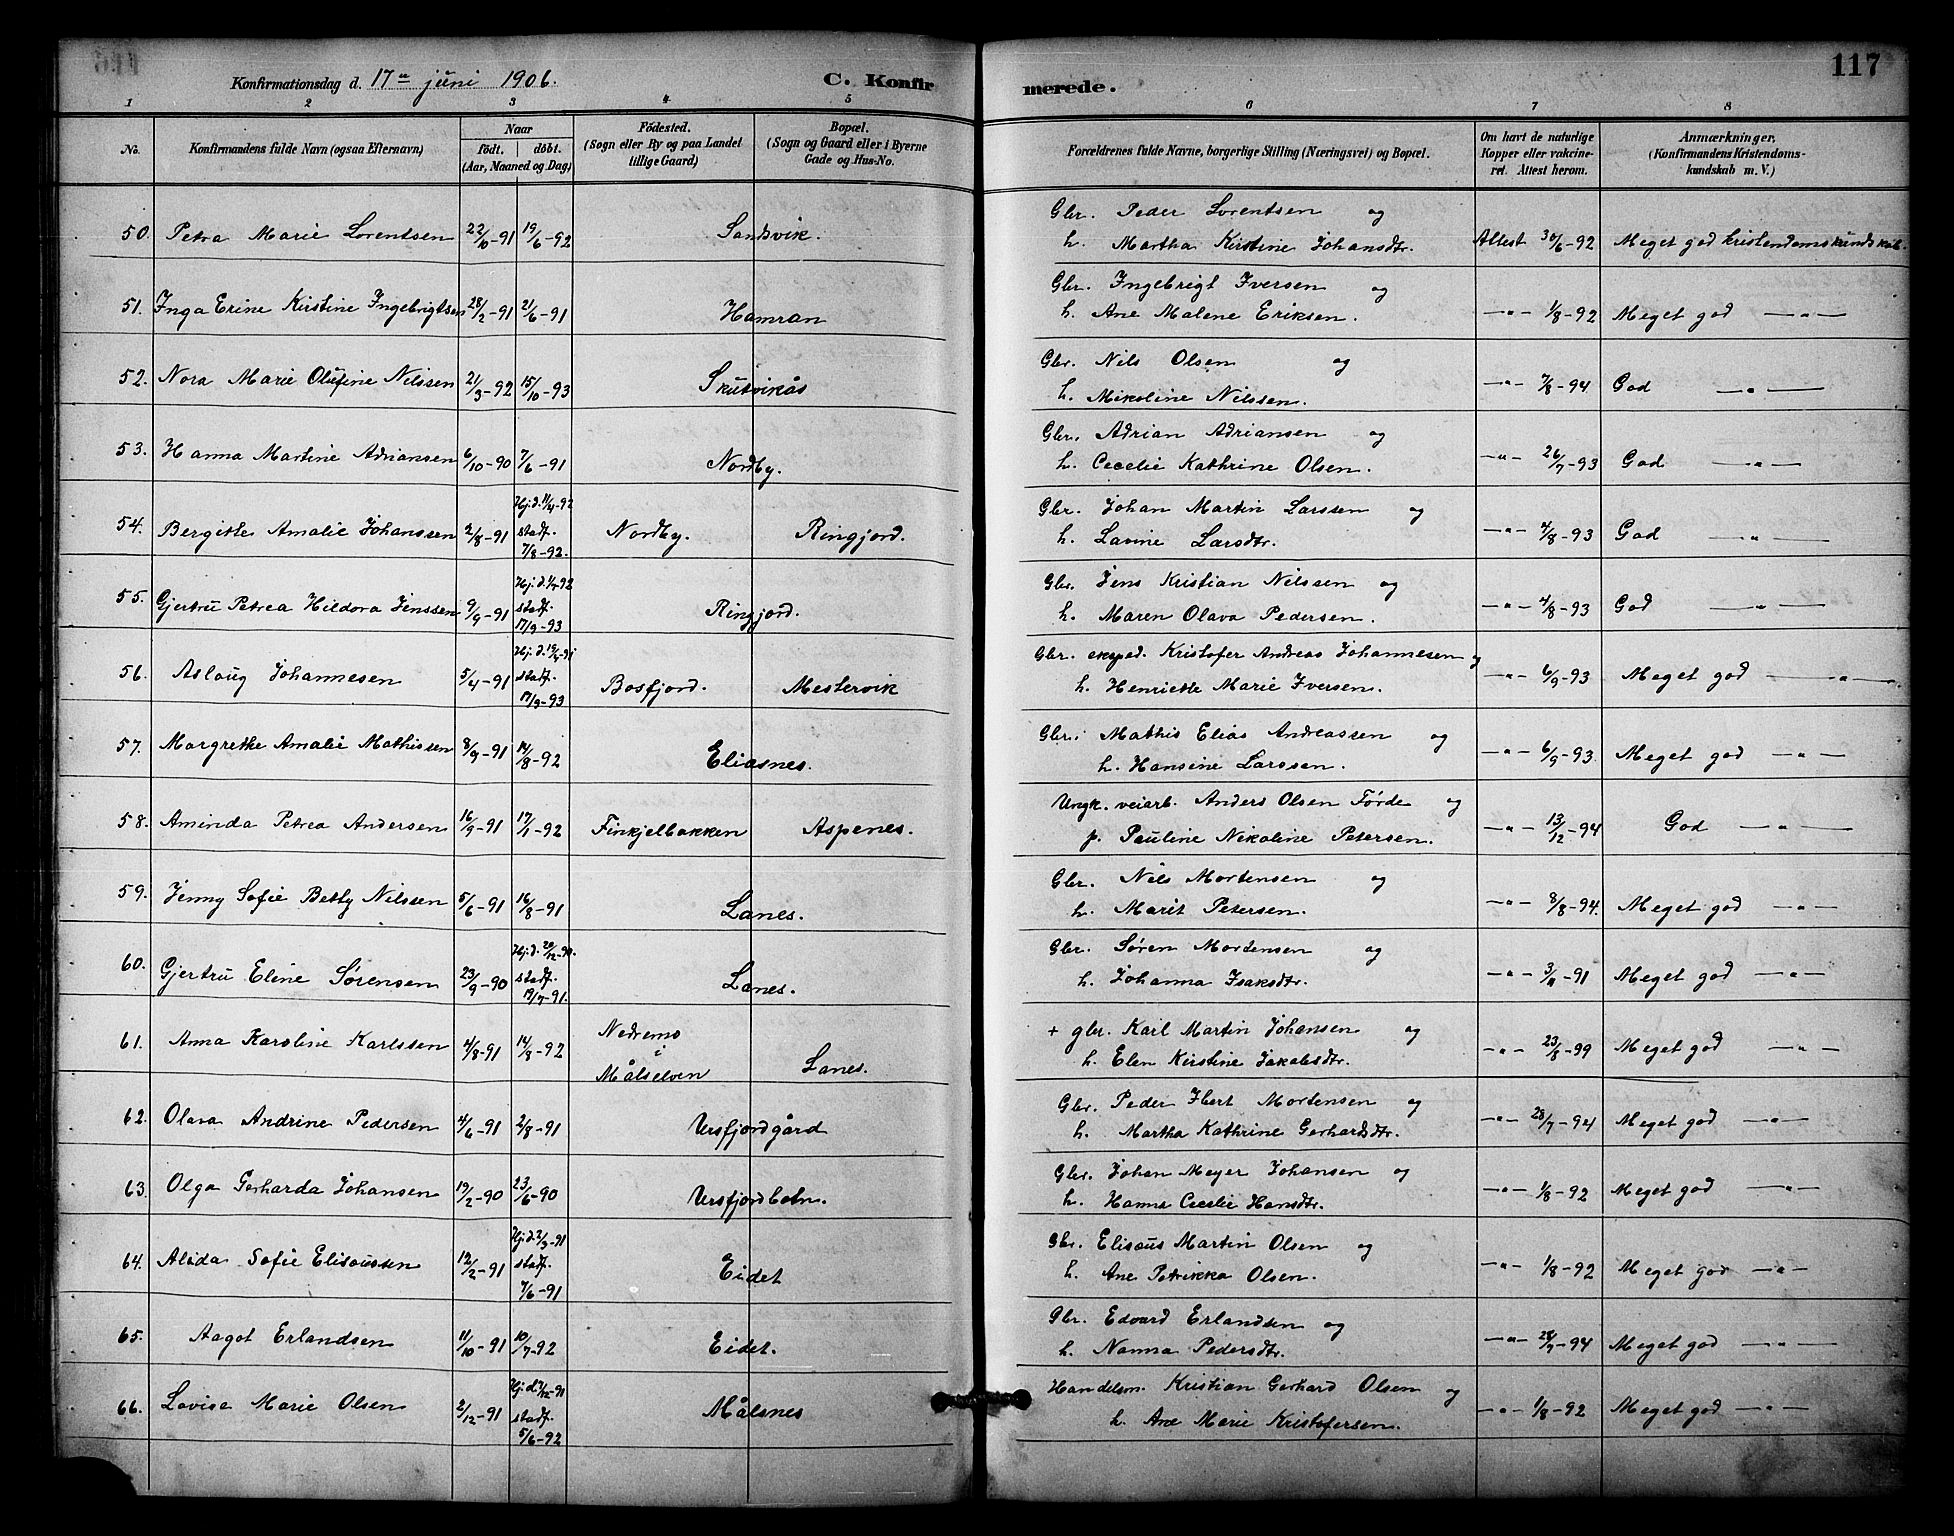 117
Konfirmationsdag d. 17de juni 1906. C. Konfirmerede.
1 2 3 4 5 6 7 8
No. Konfirmandens fulde Navn (ogsaa Efternavn) Naar født. døbt. (Aar, Maaned og Dag) Fødested. (Sogn eller By og paa Landet tillige Gaard) Bopæl. (Sogn og Gaard eller i Byerne Gade og Hus-No. Forældrenes fulde Navne, borgerlige Stilling (Næringsvei) og Bopæl. Om havt de naturlige Kopper eller vakcineret. Attest herom. Anmærkninger, (Konfirmandens Kristendomskundskab m. V.)
50. Petra Marie Lorentsen 22/10-91 19/6-92 Sandsvik. Gbr. Peder Lorentsen og
h. Martha Kirstine Johansdtr. Attest 30/6-92 Meget god kristendomskundskab.
51. Inga Erine Kirstine Ingebrigtsen 28/2-91 21/6-91 Hamran Gbr. Ingebrigt Iversen og
h. Ane Malene Eriksen. -"- 1/8-92 Meget god -"-
52. Nora Marie Olufine Nilssen 21/3-92 15/10-93 Skutvikås Gbr. Nils Olsen og
h. Mikoline Nilssen. -"- 7/8-94 God -"-
53. Hanna Martine Adriansen 6/10-90 7/6-91 Nordby. Gbr. Adrian Adriansen og
h. Cecelie Kathrine Olsen. -"- 26/7-93 God -"-
54. Bergitte Amalie Johanssen 2/8-91 Hj.d. 11/4-92 stadf. 7/8-92. Nordby. Ringjord. Gbr. Johan Martin Larssen og
h. Lavine Larsdtr. -"- 4/8-93 God -"-
55. Gjertru Petrea Hildora Jenssen 9/9-91 Hj.d. 1/7-92 stadf. 17/9-93 Ringjord. Gbr. Jens Kristian Nilssen og
h. Maren Olava Pedersen. -"- 4/8-93 God -"-
56. Aslaug Johannesen 5/4-91 Hj.d. stadf. 17/9-93 Bosfjord. Mestervik Gbr. eksped. Kristofer Andreas Johannesen og
h. Henriette Marie Iversen. -"- 6/9-93 Meget god -"-
57. Margrethe Amalie Mathissen 8/9-91 14/8-92 Eliasnes. Gbr. Mathis Elias Andreassen og
h. Hansine Larssen. -"- 6/9-93. Meget god -"-
58. Aminda Petrea Andersen 16/9-91 17/1-92 Finkjelbakken Aspenes. Ungk. veiarb. Anders Olsen Førde og
p. Pauline Nikoline Petersen. -"- 13/12-94 God -"-
59. Jenny Sofie Betty Nilssen 5/6-91 16/8-91 Lanes. Gbr. Nils Mortensen og
h. Marit Petersen. -"- 8/8-94. Meget god -"-
60. Gjertru Eline Sørensen 23/9-90 Hj.d. 20/12-90. stadf. 19/7-91. Lanes. Gbr. Søren Mortensen og
h. Johanna Isaksdtr. -"- 3/11-91 Meget god -"-
61. Anna Karoline Karlssen 4/8-91 14/8-92 Nedremo i Målselven Lanes. + gbr. Karl Martin Johansen og
h. Elen Kirstine Jakobsdtr. -"- 23/8-99 Meget god -"-
62. Olava Andrine Pedersen 4/6-91 2/8-91 Ursfjordgård Gbr. Peder Ibert Mortensen og
h. Martha Kathrine Gerhardsdtr. -"- 28/7-94 Meget god -"-
63. Olga Gerharda Johansen 19/2-90 23/6-90 Ursfjordbotn. Gbr. Johan Meyer Johansen og
h. Hanna Cecelie Hansdtr. -"- 1/8-92 Meget god -"-
64. Alida Sofie Elisæussen 12/2-91 Hj.d. 2/3-91 stadf. 7/6-91 Eidet Gbr. Elisæus Martin Olsen og
h. Ane Petrikka Olsen. -"- 1/8-92 Meget god -"-
65. Aagot Erlandsen 11/10-91 10/7-92 Eidet. Gbr. Edvard Erlandsen og
h. Nanna Pedersdtr. -"- 28/7-94 Meget god -"-
66. Lovise Marie Olsen 2/12-91 Hj.d. stadf. 5/6-92 Målsnes Handelsm. Kristian Gerhard Olsen og
h. Ane Marie Kristofersen. -"- 1/8-92 Meget god -"-